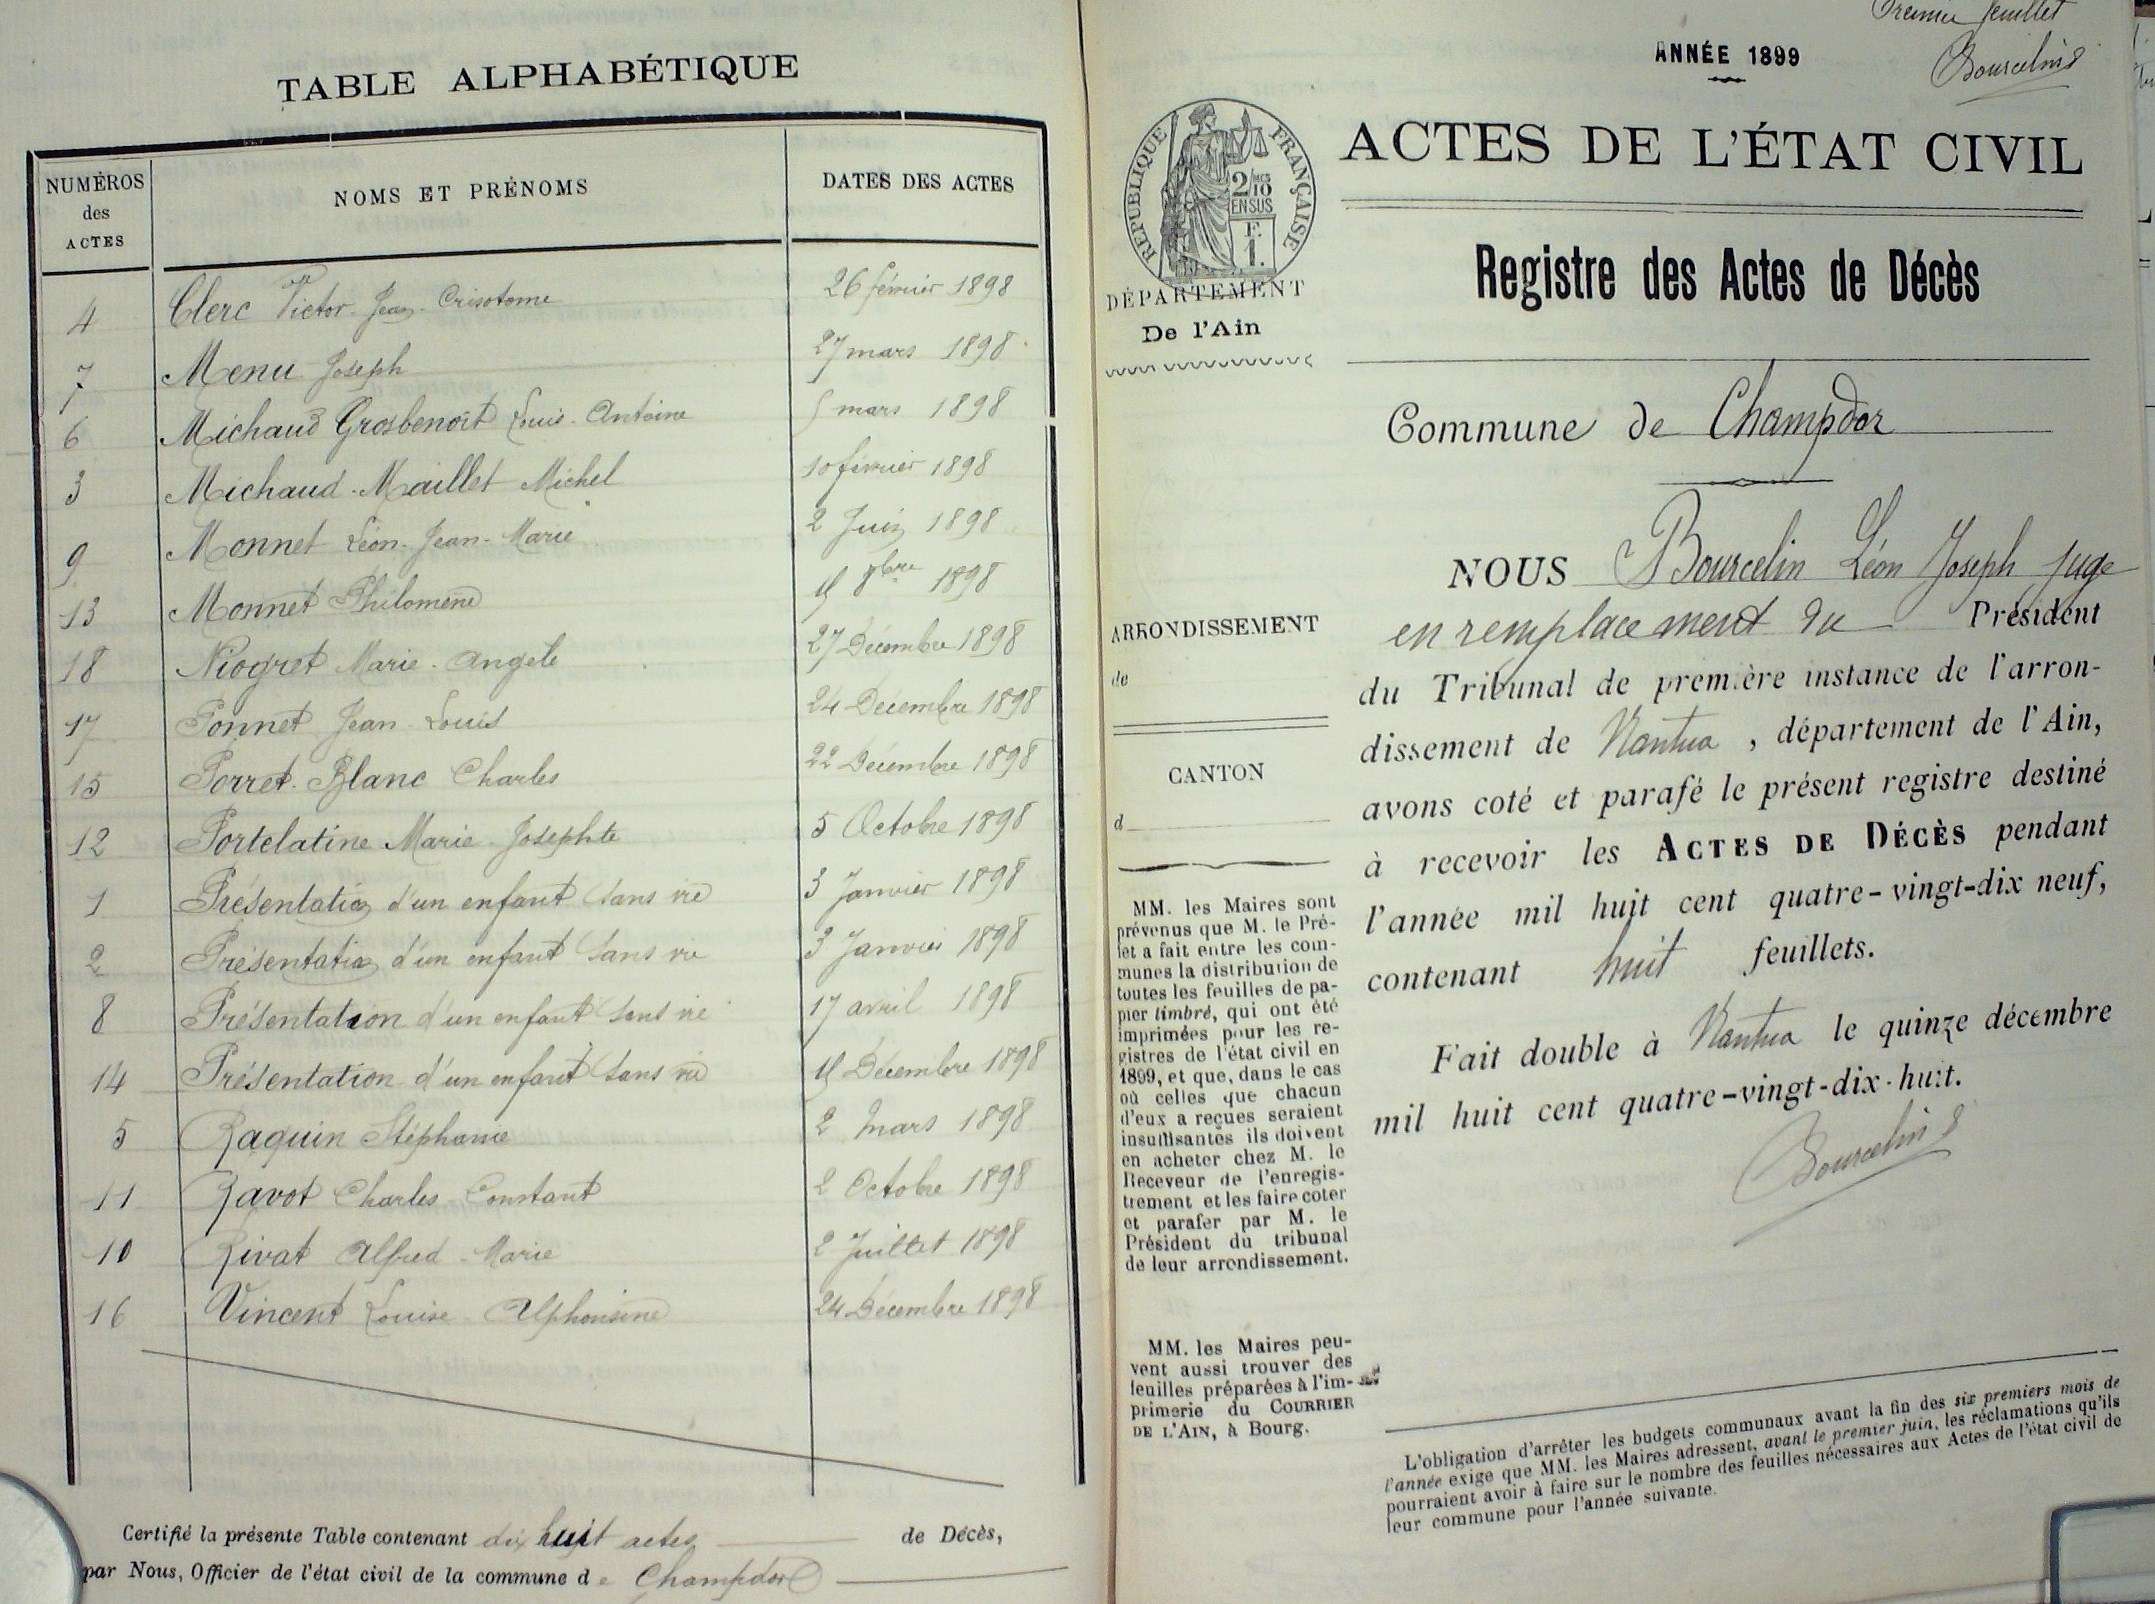 TABLE ALPHABÉTIQUE
NUMÉROS des ACTES NOMS ET PRÉNOMS DATES DES ACTES
4 Clerc Victor Jean Crisotome 26 février 1898
7 Menu Joseph 27 mars 1898
6 Michaud Grosbenoit Louis Antoine 5 mars 1898
3 Michaud-Maillet Michel 10 février 1898
9 Monnet Léon-Jean-Marie 2 Juin 1898
13 Monnet Philomène 8bre 1898
18 Niogret Marie-Angele 27 Décembre 1898
17 Ponnet Jean-Louis 24 Décembre 1898
15 Porret-Blanc Charles 22 Décembre 1898
12 Portelatine Marie Josephte 5 Octobre 1898
1 Présentation d'un enfant sans vie 3 Janvier 1898
2 Présentation d'un enfant sans vie 3 Janvier 1898
8 Présentation d'un enfant sans vie 17 avril 1898
14 Présentation d'un enfant sans vie Décembre 1898
5 Raquin Stéphanie 2 mars 1898
11 Ravot Charles Constant 2 Octobre 1898
10 Rivat Alfred-Marie 2 Juillet 1898
16 Vincent Louise Alphonsine 24 Décembre 1898
Certifié la présente Table contenant dix huit actes de Décès,
par Nous, Officier de l'état civil de la commune de Champdor
Premier feuillet
Bourcelin
ANNÉE 1899
RÉPUBLIQUE FRANÇAISE
2/10 EN SUS
F. 1.
ACTES DE L'ÉTAT CIVIL
Registre des Actes de Décès
DÉPARTEMENT
De l'Ain
Commune de Champdor
ARRONDISSEMENT
de
CANTON
d
MM. les Maires sont
prévenus que M. le Pré-
fet a fait entre les com-
munes la distribution de
toutes les feuilles de pa-
pier timbré, qui ont été
imprimées pour les re-
gistres de l'état civil en
1899, et que, dans le cas
où celles que chacun
d'eux a reçues seraient
insuffisantes ils doivent
en acheter chez M. le
Receveur de l'enregis-
trement et les faire coter
et parafer par M. le
Président du tribunal
de leur arrondissement.
MM. les Maires peu-
vent aussi trouver des
feuilles préparées à l'im-
primerie du COURRIER
DE L'AIN, à Bourg.
NOUS Bourcelin Léon Joseph juge
en remplacement du Président
du Tribunal de première instance de l'arron-
dissement de Nantua, département de l'Ain,
avons coté et parafé le présent registre destiné
à recevoir les ACTES DE DÉCÈS pendant
l'année mil huit cent quatre-vingt-dix neuf,
contenant huit feuillets.
Fait double à Nantua le quinze décembre
mil huit cent quatre-vingt-dix-huit.
Bourcelin
L'obligation d'arrêter les budgets communaux avant la fin des six premiers mois de
l'année exige que MM. les Maires adressent, avant le premier juin, les réclamations qu'ils
pourraient avoir à faire sur le nombre des feuilles nécessaires aux Actes de l'état civil de
leur commune pour l'année suivante.